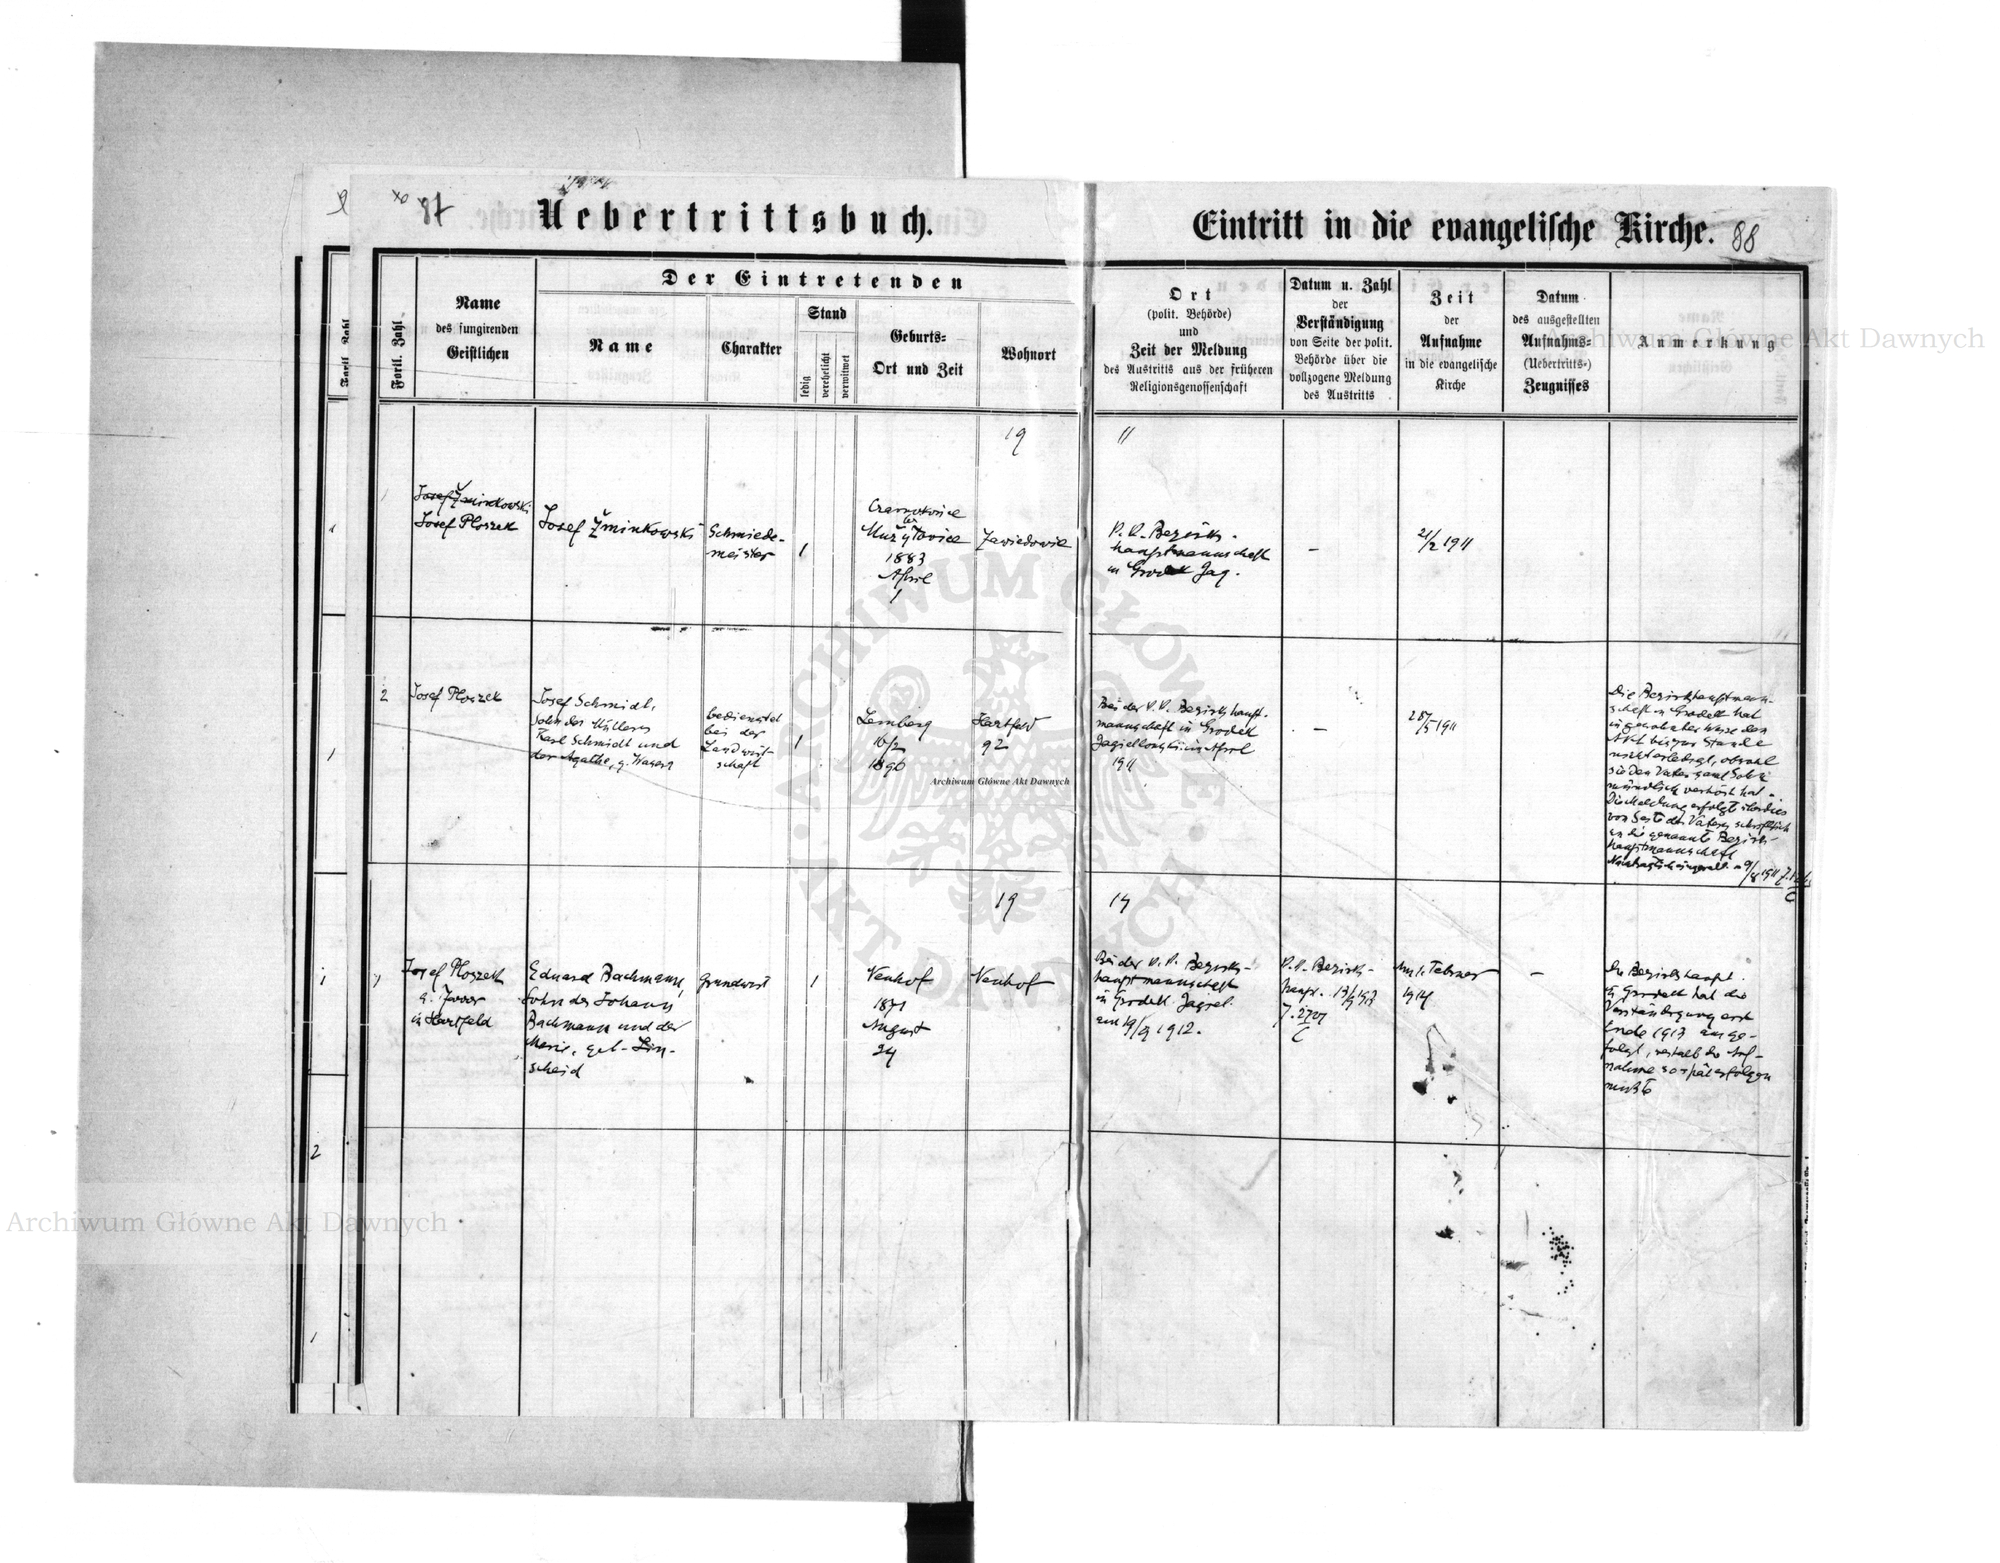 87
Uebertrittsbuch.
Eintritt in die evangelische Kirche.
88
Fortl. Zahl
Fortl. Zahl
Name
des fungirenden
Geistlichen
Der Eintretenden
Name
Charakter
Stand
ledig
verehelicht
verwitwet
Geburts-
Ort und Zeit
Wohnort
Ort
(polit. Behörde)
und
Zeit der Meldung
des Austritts aus der früheren
Religionsgenossenschaft
Datum u. Zahl
der
Verständigung
von Seite der polit.
Behörde über die
vollzogene Meldung
des Austritts
Zeit
der
Aufnahme
in die evangelische
Kirche
Datum
des ausgestellten
Aufnahms-
(Uebertritts-)
Zeugnisses
Anmerkung
19
11
Josef Żminkowski
Josef Ploszek
Josef Żminkowski
Schmiede-
meister
1
1883
April
1
Zawidowic
K.K. Bezirks-
hauptmannschaft
in Grodek Jag.
–
21/2 1911
2
Josef Ploszek
Josef Schmidt,
Sohn des Müllers
Karl Schmidt und
der Agathe, g.
bedienstet
bei der
Landwirt-
schaft
1
Lemberg
16/2
1890
Hartfeld
92
Bei der K.K. Bezirkshaupt-
mannschaft in Grodek
Jagiellonski im April
1911
–
28/5 1911
Die Bezirkshauptmann-
schaft in Grodek hat
den
Akt bis zur Stunde
nicht erledigt, obwohl
sie den Vater und Sohn
mündlich verhört hat.
Die Meldung erfolgte überdies
von Seite des Vaters schriftlich
an die genannte Bezirks-
hauptmannschaft
19
14
Josef Ploszek
in Hartfeld
Eduard Bachmann,
Sohn des Johann
Bachmann und der
Marie, geb. Lin-
scheid
Grundwirt
1
Neuhof
1871
August
24
Neuhof
Bei der K.K. Bezirks-
hauptmannschaft
in Grodek Jagiel.
am 19/9 1912.
K.K. Bezirks-
haupt.
Am 1. Februar
1914
–
Die Bezirkshaupt.
in Grodek hat die
Verständigung erst
Ende 1913 ausge-
folgt, weshalb die Auf-
nahme so spät erfolgen
mußte
1
1
1
2
1
ARCHIWUM GŁÓWNE AKT DAWNYCH
Archiwum Główne Akt Dawnych
Archiwum Główne Akt Dawnych
Archiwum Główne Akt Dawnych